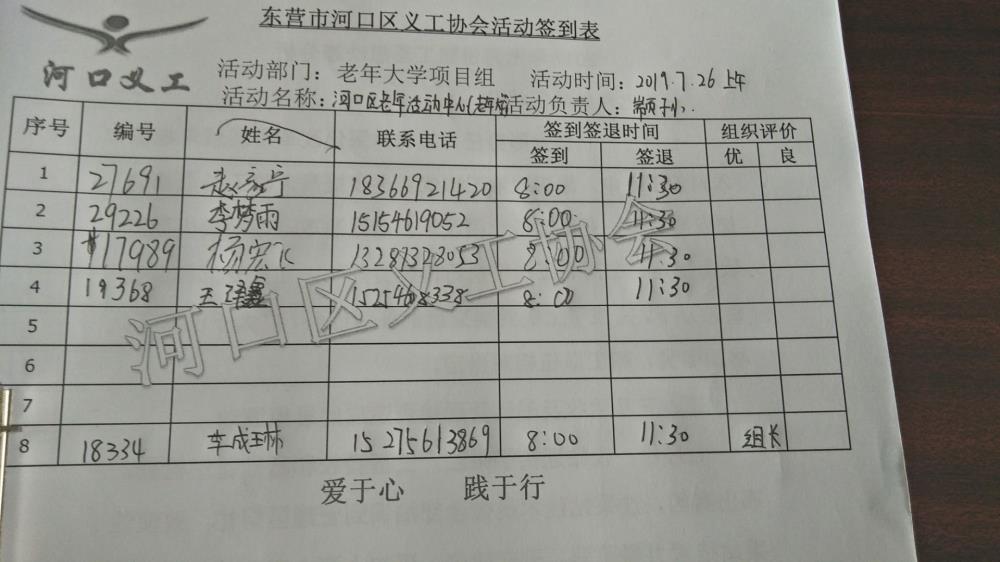 东营市河口区义工协会活动签到表
河口义工
活动部门：老年大学项目组 活动时间：2019.7.26上午
活动名称：河口区老年活动中心(老年 活动负责人：
序号 编号 姓名 联系电话 签到签退时间 组织评价
签到 签退 优 良
1 27691 赵 宁 18366921420 8:00 11:30
2 29226 李梦雨 15154619052 8:00 11:30
3 17989 杨宏飞 13281323053 8:00 11:30
4 19368 王 鑫 1525468338 8:00 11:30
5
6
7
8 18334 李成 15275613869 8:00 11:30 组长
河口区义工协会
爱于心 践于行